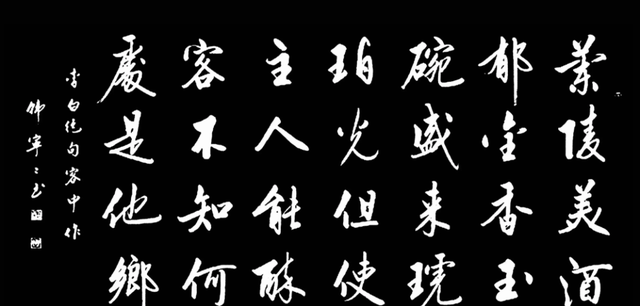 蘭陵美酒
郁金香玉
碗盛来琥
珀光但使
主人能醉
客不知何
處是他鄉
李白绝句客中作